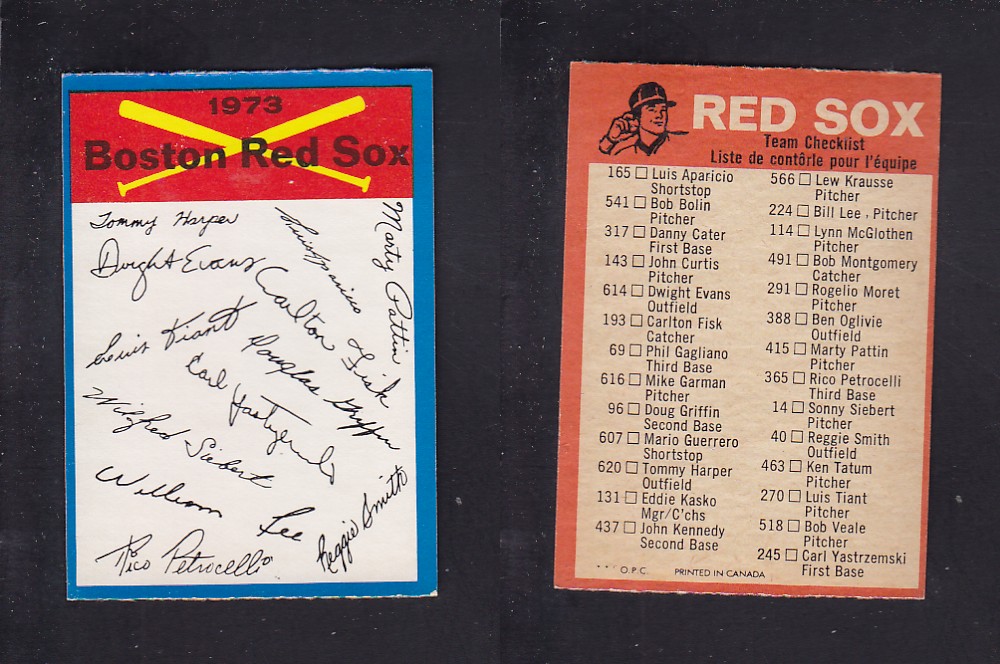 1973
Boston Red Sox
Tommy Harper
Dwight Evans
Luis Aparicio
Marty Pattin
Carlton Fisk
Luis Tiant
Douglas Griffin
Carl Yastrzemski
Wilfred Siebert
William Lee
Reggie Smith
Rico Petrocelli
RED SOX
Team Checklist
Liste de contôrle pour l'équipe
165 □ Luis Aparicio
Shortstop
541 □ Bob Bolin
Pitcher
317 □ Danny Cater
First Base
143 □ John Curtis
Pitcher
614 □ Dwight Evans
Outfield
193 □ Carlton Fisk
Catcher
69 □ Phil Gagliano
Third Base
616 □ Mike Garman
Pitcher
96 □ Doug Griffin
Second Base
607 □ Mario Guerrero
Shortstop
620 □ Tommy Harper
Outfield
131 □ Eddie Kasko
Mgr/C'chs
437 □ John Kennedy
Second Base
566 □ Lew Krausse
Pitcher
224 □ Bill Lee, Pitcher
114 □ Lynn McGlothen
Pitcher
491 □ Bob Montgomery
Catcher
291 □ Rogelio Moret
Pitcher
388 □ Ben Oglivie
Outfield
415 □ Marty Pattin
Pitcher
365 □ Rico Petrocelli
Third Base
14 □ Sonny Siebert
Pitcher
40 □ Reggie Smith
Outfield
463 □ Ken Tatum
Pitcher
270 □ Luis Tiant
Pitcher
518 □ Bob Veale
Pitcher
245 □ Carl Yastrzemski
First Base
*** O.P.C. PRINTED IN CANADA